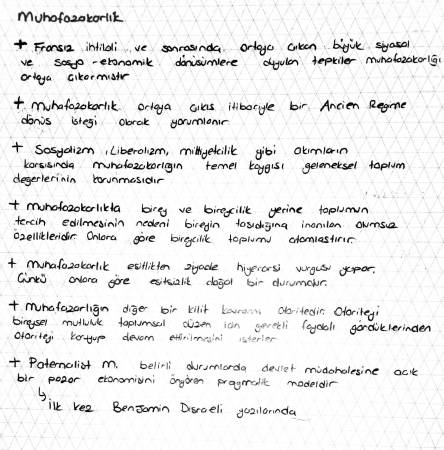 Muhafazakarlık
+ Fransız ihtilali ve sonrasında ortaya çıkan büyük siyasal
ve sosyo-ekonomik dönüşümlere duyulan tepkiler muhafazakarlığı
ortaya çıkarmıştır
+ Muhafazakarlık ortaya çıkış itibariyle bir Ancien Regime
dönüş isteği olarak yorumlanır
+ Sosyalizm, Liberalizm, milliyetcilik gibi akımların
karşısında muhafazakarlığın temel kaygısı geleneksel toplum
değerlerinin korunmasıdır
+ Muhafazakarlıkta birey ve bireycilik yerine toplumun
tercih edilmesinin nedeni bireyin taşıdığına inanılan olumsuz
özelliklerdir Onlara göre bireycilik toplumu atomlaştırır.
+ Muhafazakarlık eşitlikten ziyade hiyerarşi vurgusu yapar.
Çünkü onlara göre eşitsizlik doğal bir durumdur.
+ Muhafazarlığın diğer bir kilit kavramı Otoritedir. Otoriteyi
bireysel mutluluk toplumsal düzen için gerekli faydalı gördüklerinden
Otoriteyi koruyup devam ettirilmesini isterler
+ Paternalist M. belirli durumlarda devlet müdahalesine açık
bir pazar ekonomisini öngören pragmatik modeldir
↳ ilk kez Benjamin Disraeli yazılarında